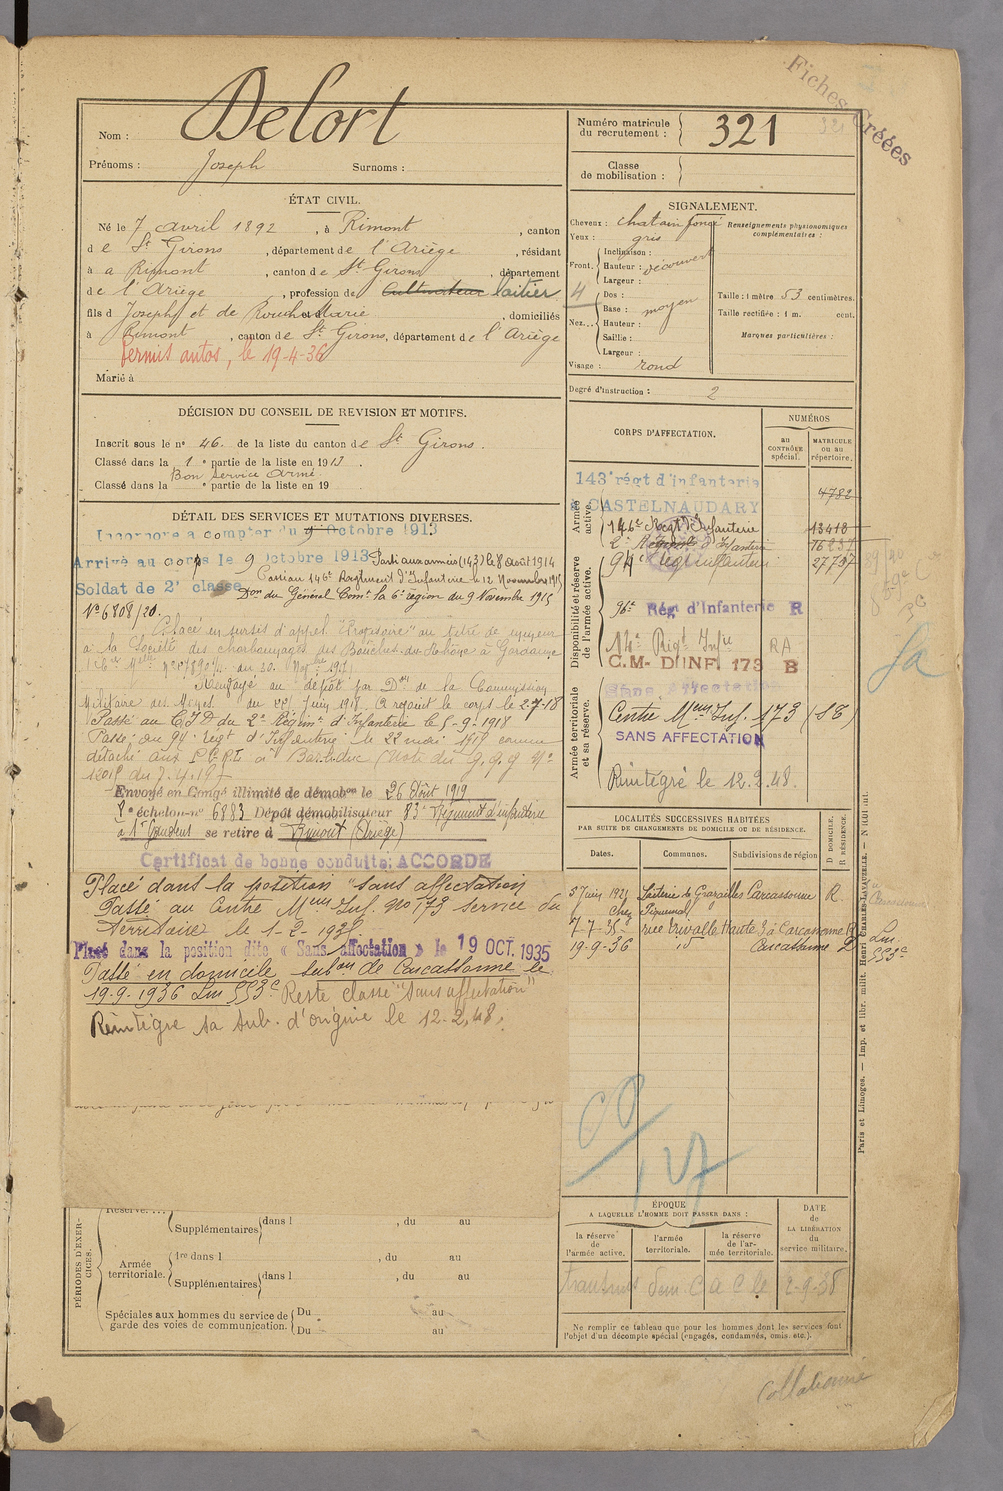 Fiches Créées
Nom : Delort
Prénoms : Joseph Surnoms :
Numéro matricule du recrutement : 321
Classe de mobilisation :
ÉTAT CIVIL.
Né le 7 avril 1892, à Rimont, canton
de St Girons, département de l'Ariège, résidant
à a Rimont, canton de St Girons, département
de l'Ariège, profession de Cultivateur laitier
fils d Joseph et de Rouch Marie, domiciliés
à Rimont, canton de St Girons, département de l'Ariège
Permis autos, le 19-4-36
Marié à
SIGNALEMENT.
Cheveux : chatain foncé
Yeux : gris
Front. Inclinaison :
Hauteur : découvert
Largeur :
4
Nez... Dos :
Base : moyen
Hauteur :
Saillie :
Largeur :
Visage : rond
Renseignements physionomiques complémentaires :
Taille : 1 mètre 53 centimètres.
Taille rectifiée : 1 m. cent.
Marques particulières :
Degré d'instruction : 2
DÉCISION DU CONSEIL DE REVISION ET MOTIFS.
Inscrit sous le n° 46. de la liste du canton de St Girons.
Classé dans la 1e partie de la liste en 1913.
Bon Service Armé
Classé dans la e partie de la liste en 19
DÉTAIL DES SERVICES ET MUTATIONS DIVERSES.
Incorporé à compter du 9 Octobre 1913
Arrivé au corps le 9 Octobre 1913 Parti aux armées (143) le 8 août 1914
Soldat de 2e classe Passé au 146e Régiment d'Infanterie le 12 Novembre 1915
Don du Général Comt la 6e région du 9 Novembre 1915
N° 6808/20.
Placé en sursis d'appel "Provisoire" au titre de mineur
à la Société des charbonnages des Bouches-du-Rhône à Gardanne
Renvoyé au dépôt par Don de la Commission
Militaire des Mines du 22 Juin 1918. A rejoint le corps le 2-7-18
Passé au C.I.D du 2e Régimt d'Infanterie le 5-9-1918
Passé au 94e Régt d'Infanterie le 22 mars 1919 comme
détaché aux P.C.R.I. à Bar-le-duc (Note du G.Q.G N°
Envoyé en Congé illimité de démobon le 26 Août 1919
8e échelon-n° 6883 Dépôt démobilisateur 83e Régiment d'infanterie
à St Gaudens se retire à Rimont (Ariège)
Certificat de bonne conduite: ACCORDÉ
Placé dans la position "sans affectation"
Passé au Centre Mum Inf. N° 173 service du
Territoire le 1-2-1928
Placé dans la position dite « Sans affectation » le 19 OCT. 1935
Passé en domicile subon de Carcassonne le
19-9-1936 Lm 553c Reste classé "sans affectation"
Réintégré sa sub. d'origine le 12-2-48.
CORPS D'AFFECTATION.
NUMÉROS
au CONTRÔLE spécial.
MATRICULE ou au répertoire.
Armée active.
143e régt d'infanterie
à CASTELNAUDARY
4782
146e Régt d'Infanterie 13418
2e Régimt d'Infanterie 16231
94e Reg infanterie 27737
Disponibilité et réserve de l'armée active.
96e Rég d'Infanterie R
14e Régt Infie RA
C.M- D'INF. 173 B
Armée territoriale et sa réserve.
Sans Affectation
Centre Mum Inf. 173 (S T)
SANS AFFECTATION
Réintégré le 12.2.48.
LOCALITÉS SUCCESSIVES HABITÉES
PAR SUITE DE CHANGEMENTS DE DOMICILE OU DE RÉSIDENCE.
Dates. Communes. Subdivisions de région D DOMICILE. R RÉSIDENCE.
5 Juin 1921 Laiterie de Grazailles Carcassonne R.
7-7-35 rue Trivalle Haute 3 à Carcassonne R
19-9-36 id Carcassonne D Lm. 553c
ÉPOQUE
A LAQUELLE L'HOMME DOIT PASSER DANS :
la réserve de l'armée active.
l'armée territoriale.
la réserve de l'armée territoriale.
DATE de LA LIBÉRATION du service militaire.
Ne remplir ce tableau que pour les hommes dont les services font
l'objet d'un décompte spécial (engagés, condamnés, omis, etc.).
PÉRIODES D'EXERCICES.
Réserve. ...
Supplémentaires dans l , du au
Armée territoriale. 1re dans l , du au
Supplémentaires dans l , du au
Spéciales aux hommes du service de garde des voies de communication. Du au
Du au
Paris et Limoges. — Imp. et libr. milit. Henri CHARLES-LAVAUZELLE.
Collationné